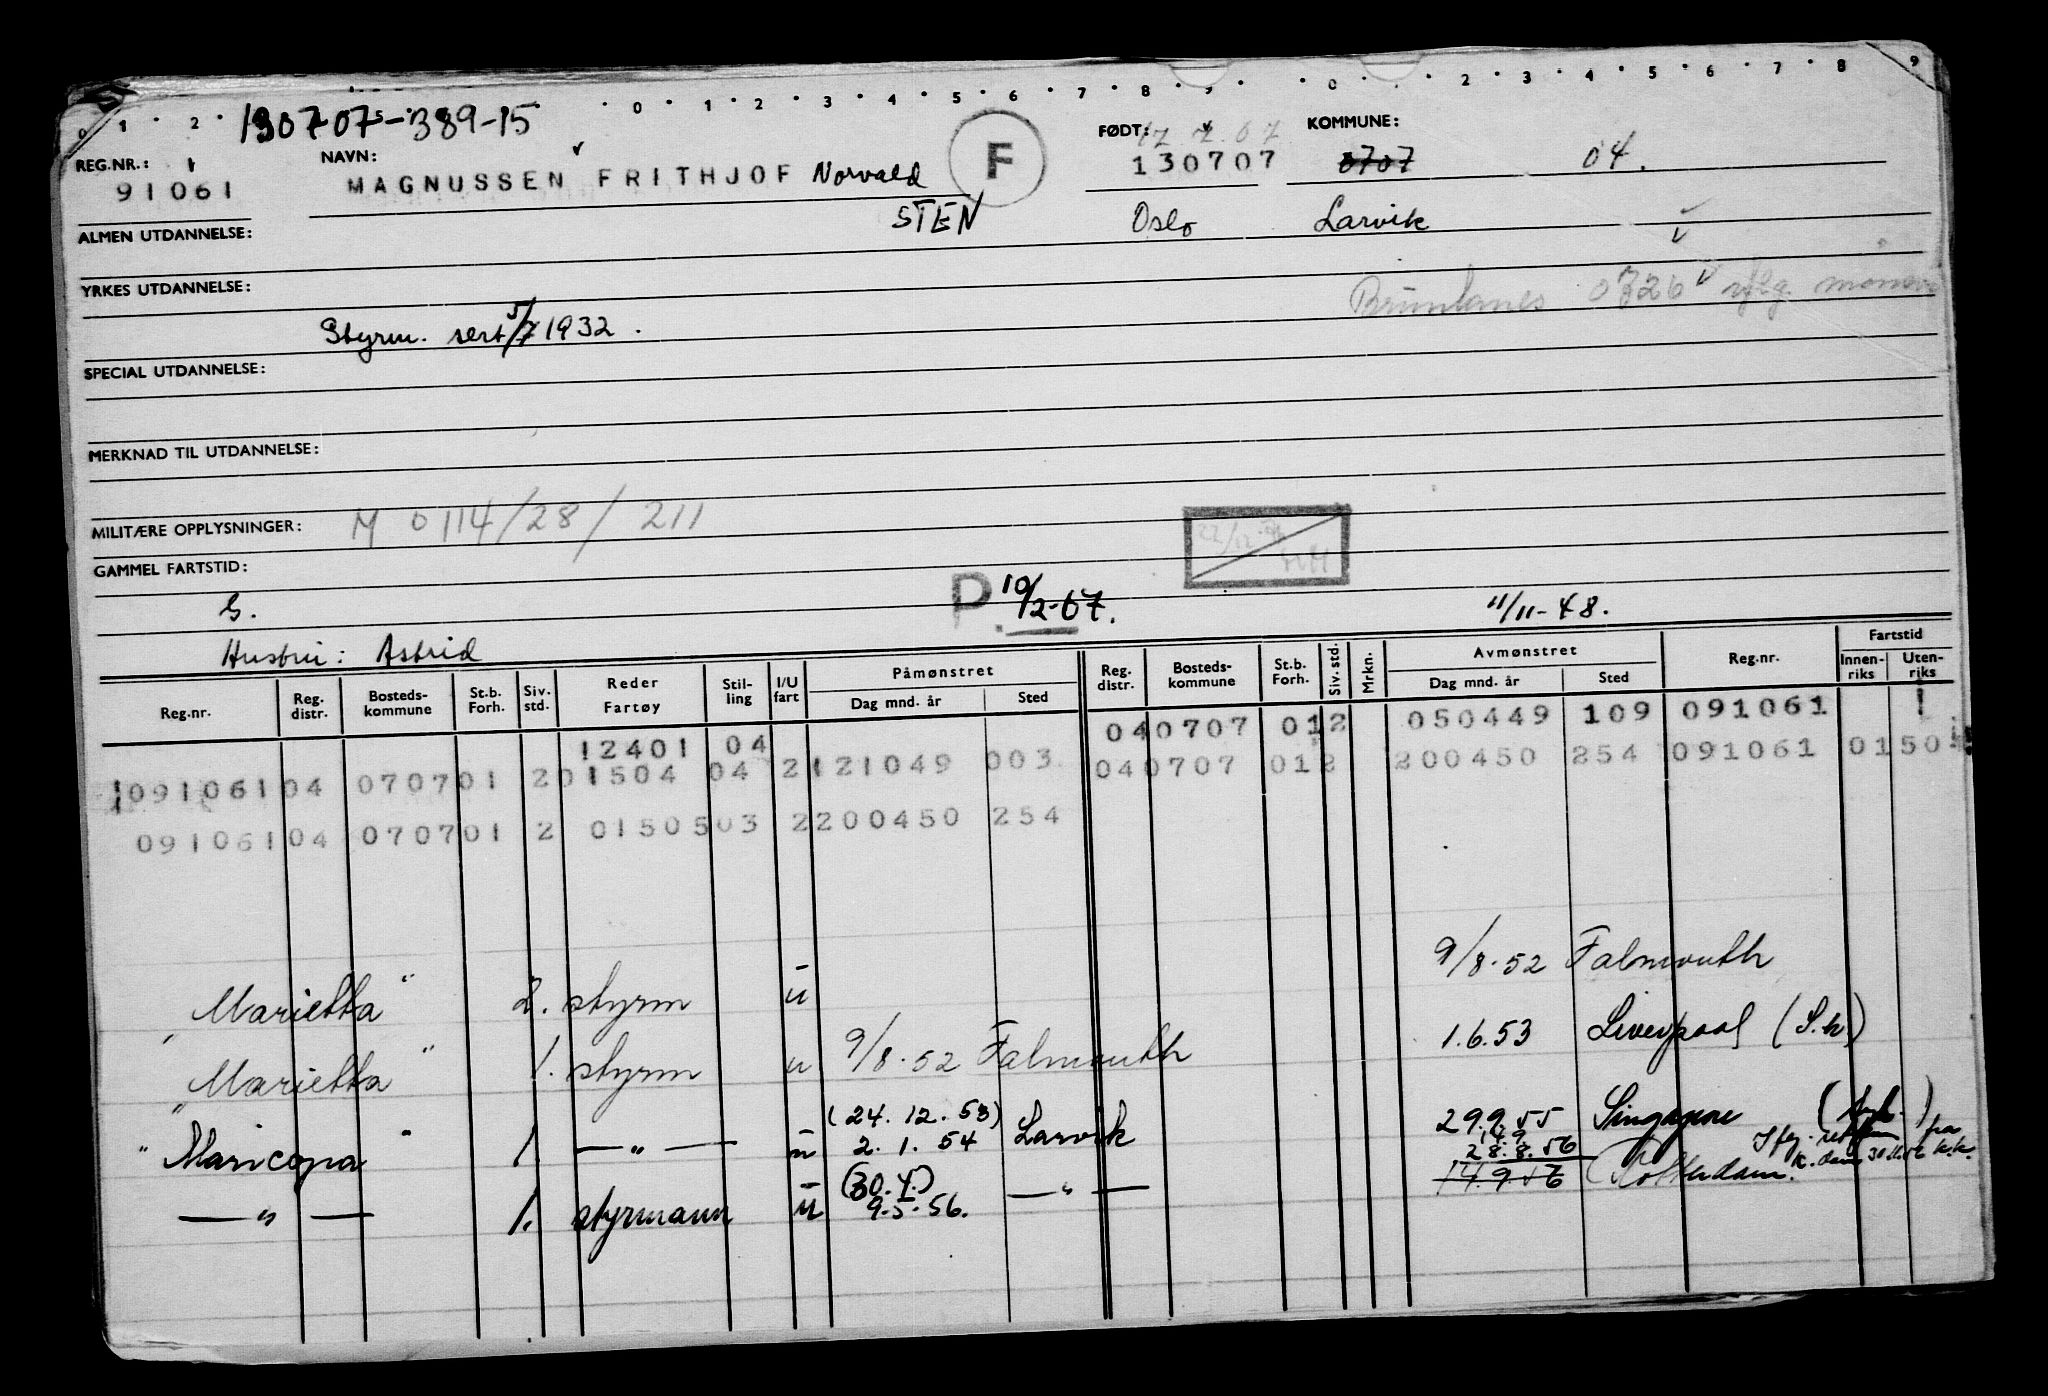 0 1 2 0 1 2 3 4 5 6 7 8 9 0 2 3 4 5 6 7 8 9
130707-389-15
REG.NR.: NAVN: FØDT: 17 7.07 KOMMUNE:
91061 MAGNUSSEN FRITHJOF Norvald F 130707 0707 04.
STEN Oslo Larvik
ALMEN UTDANNELSE:
YRKES UTDANNELSE: Brunlanes 0726
Styrm. sert 5/7 1932.
SPECIAL UTDANNELSE:
MERKNAD TIL UTDANNELSE:
MILITÆRE OPPLYSNINGER: M 0114/28/211
GAMMEL FARTSTID:
G. P. 10/2-67. 11/11-48.
Hustru: Astrid
Reg.nr. Reg. distr. Bosteds-kommune St.b. Forh. Siv. std. Reder Fartøy Stil-ling I/U fart Påmønstret Dag mnd. år Sted Reg. distr. Bosteds-kommune St.b. Forh. Siv. std. Mrkn. Avmønstret Dag mnd. år Sted Reg.nr. Fartstid Innen-riks Uten-riks
12401 04 04 0707 01 2 050449 109 091061 1
091061 04 0707 01 2 01504 04 2 121049 003 04 0707 01 2 200450 254 091061 01 50
091061 04 0707 01 2 01505 03 2 200450 254
"Marietta" 2. styrm u 9/8.52 Falmouth
"Marietta" 1. styrm u 9/8.52 Falmouth 1.6.53 Liverpool (S.h)
"Maricopa" 1. — " — u (24.12.53) 2.1.54 Larvik 29.9.55 Singapore
— " — 1. styrmann u (30.4.) 9.5.56. — " — 14.9 28.8.56 14.9.56 Rotterdam.